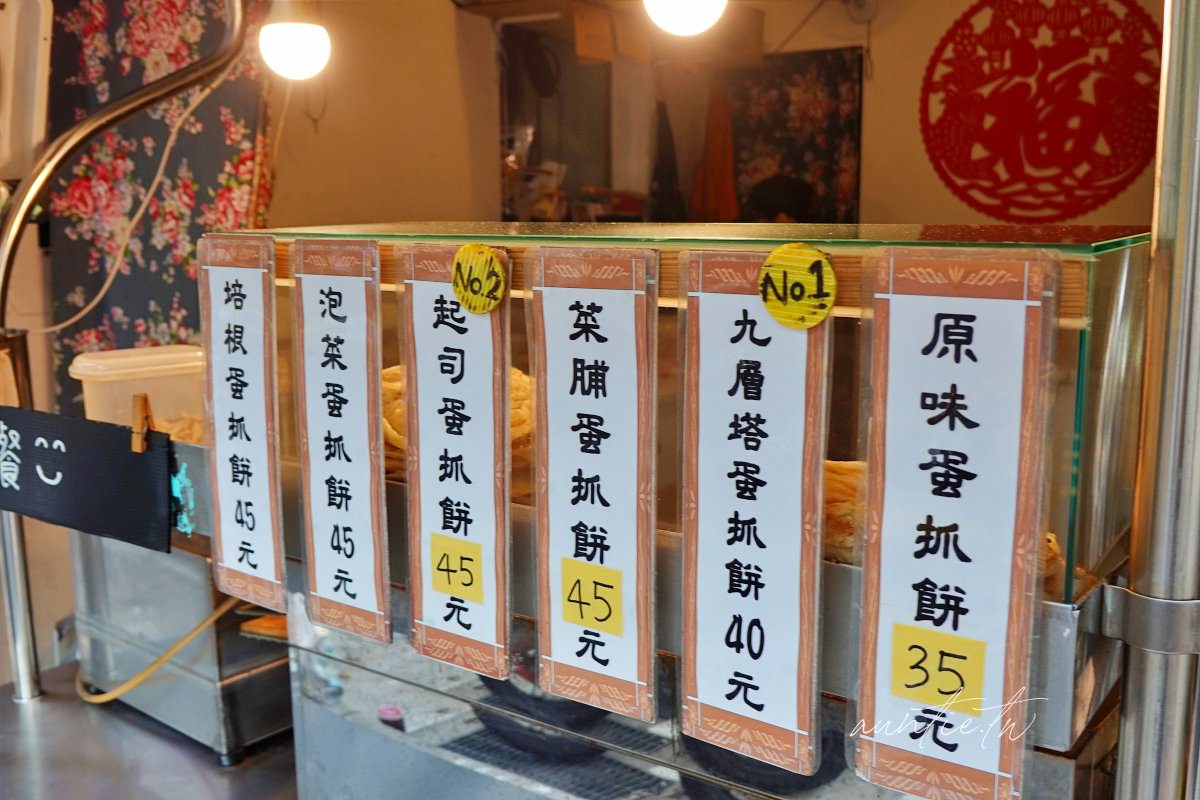 原味蛋抓餅35元
No.1
九層塔蛋抓餅40元
菜脯蛋抓餅45元
No.2
起司蛋抓餅45元
泡菜蛋抓餅45元
培根蛋抓餅45元
餐
福
auntie.tw